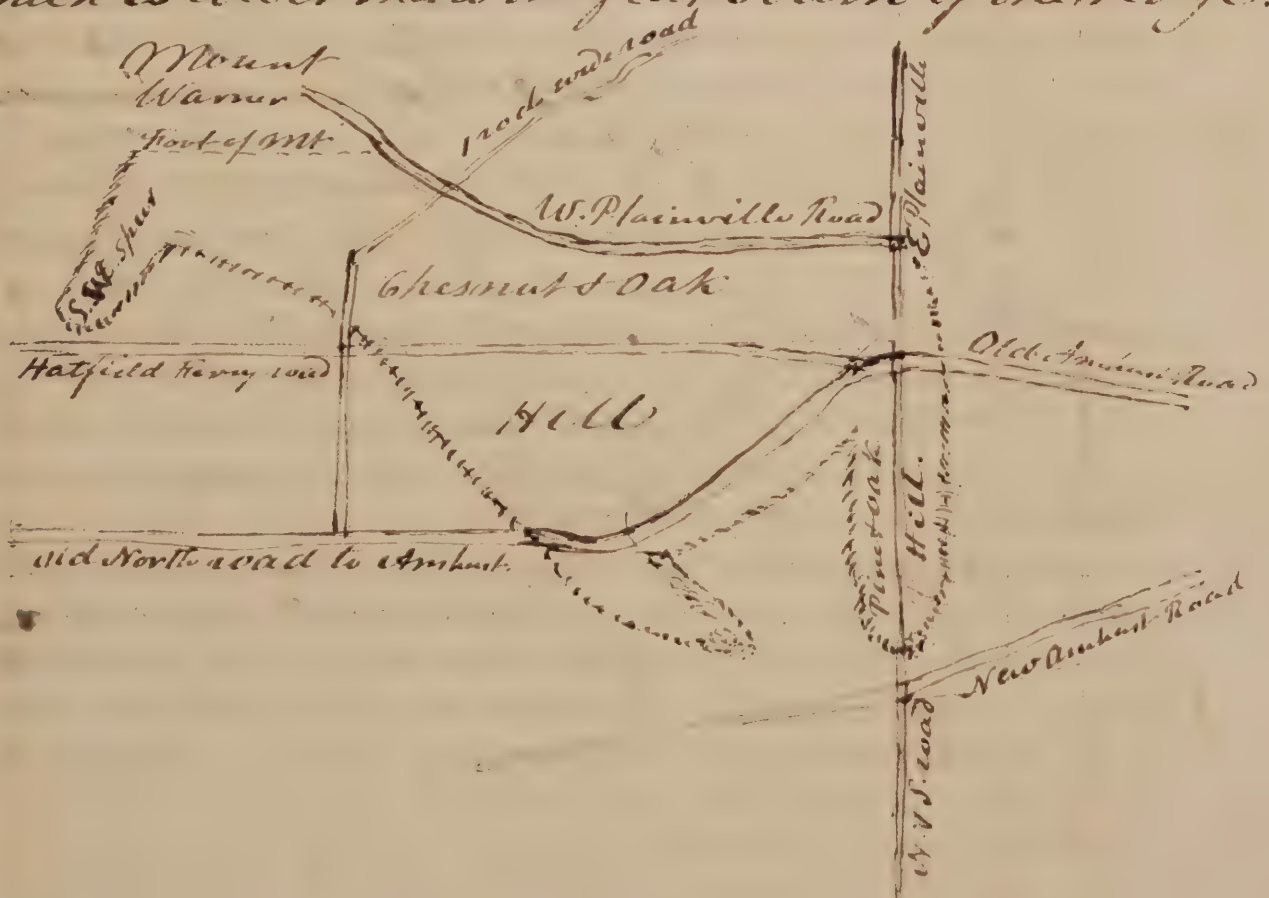 Mount
Warner
Foot of Mt
1 rod wide road
W. Plainville Road
E Plainville
Spur
Chesnut & Oak
Hatfield Ferry road
Old Amherst Road
Hill
Pine & Oak
Hill.
Old North road to Amherst.
New Amherst Road
N & S. road